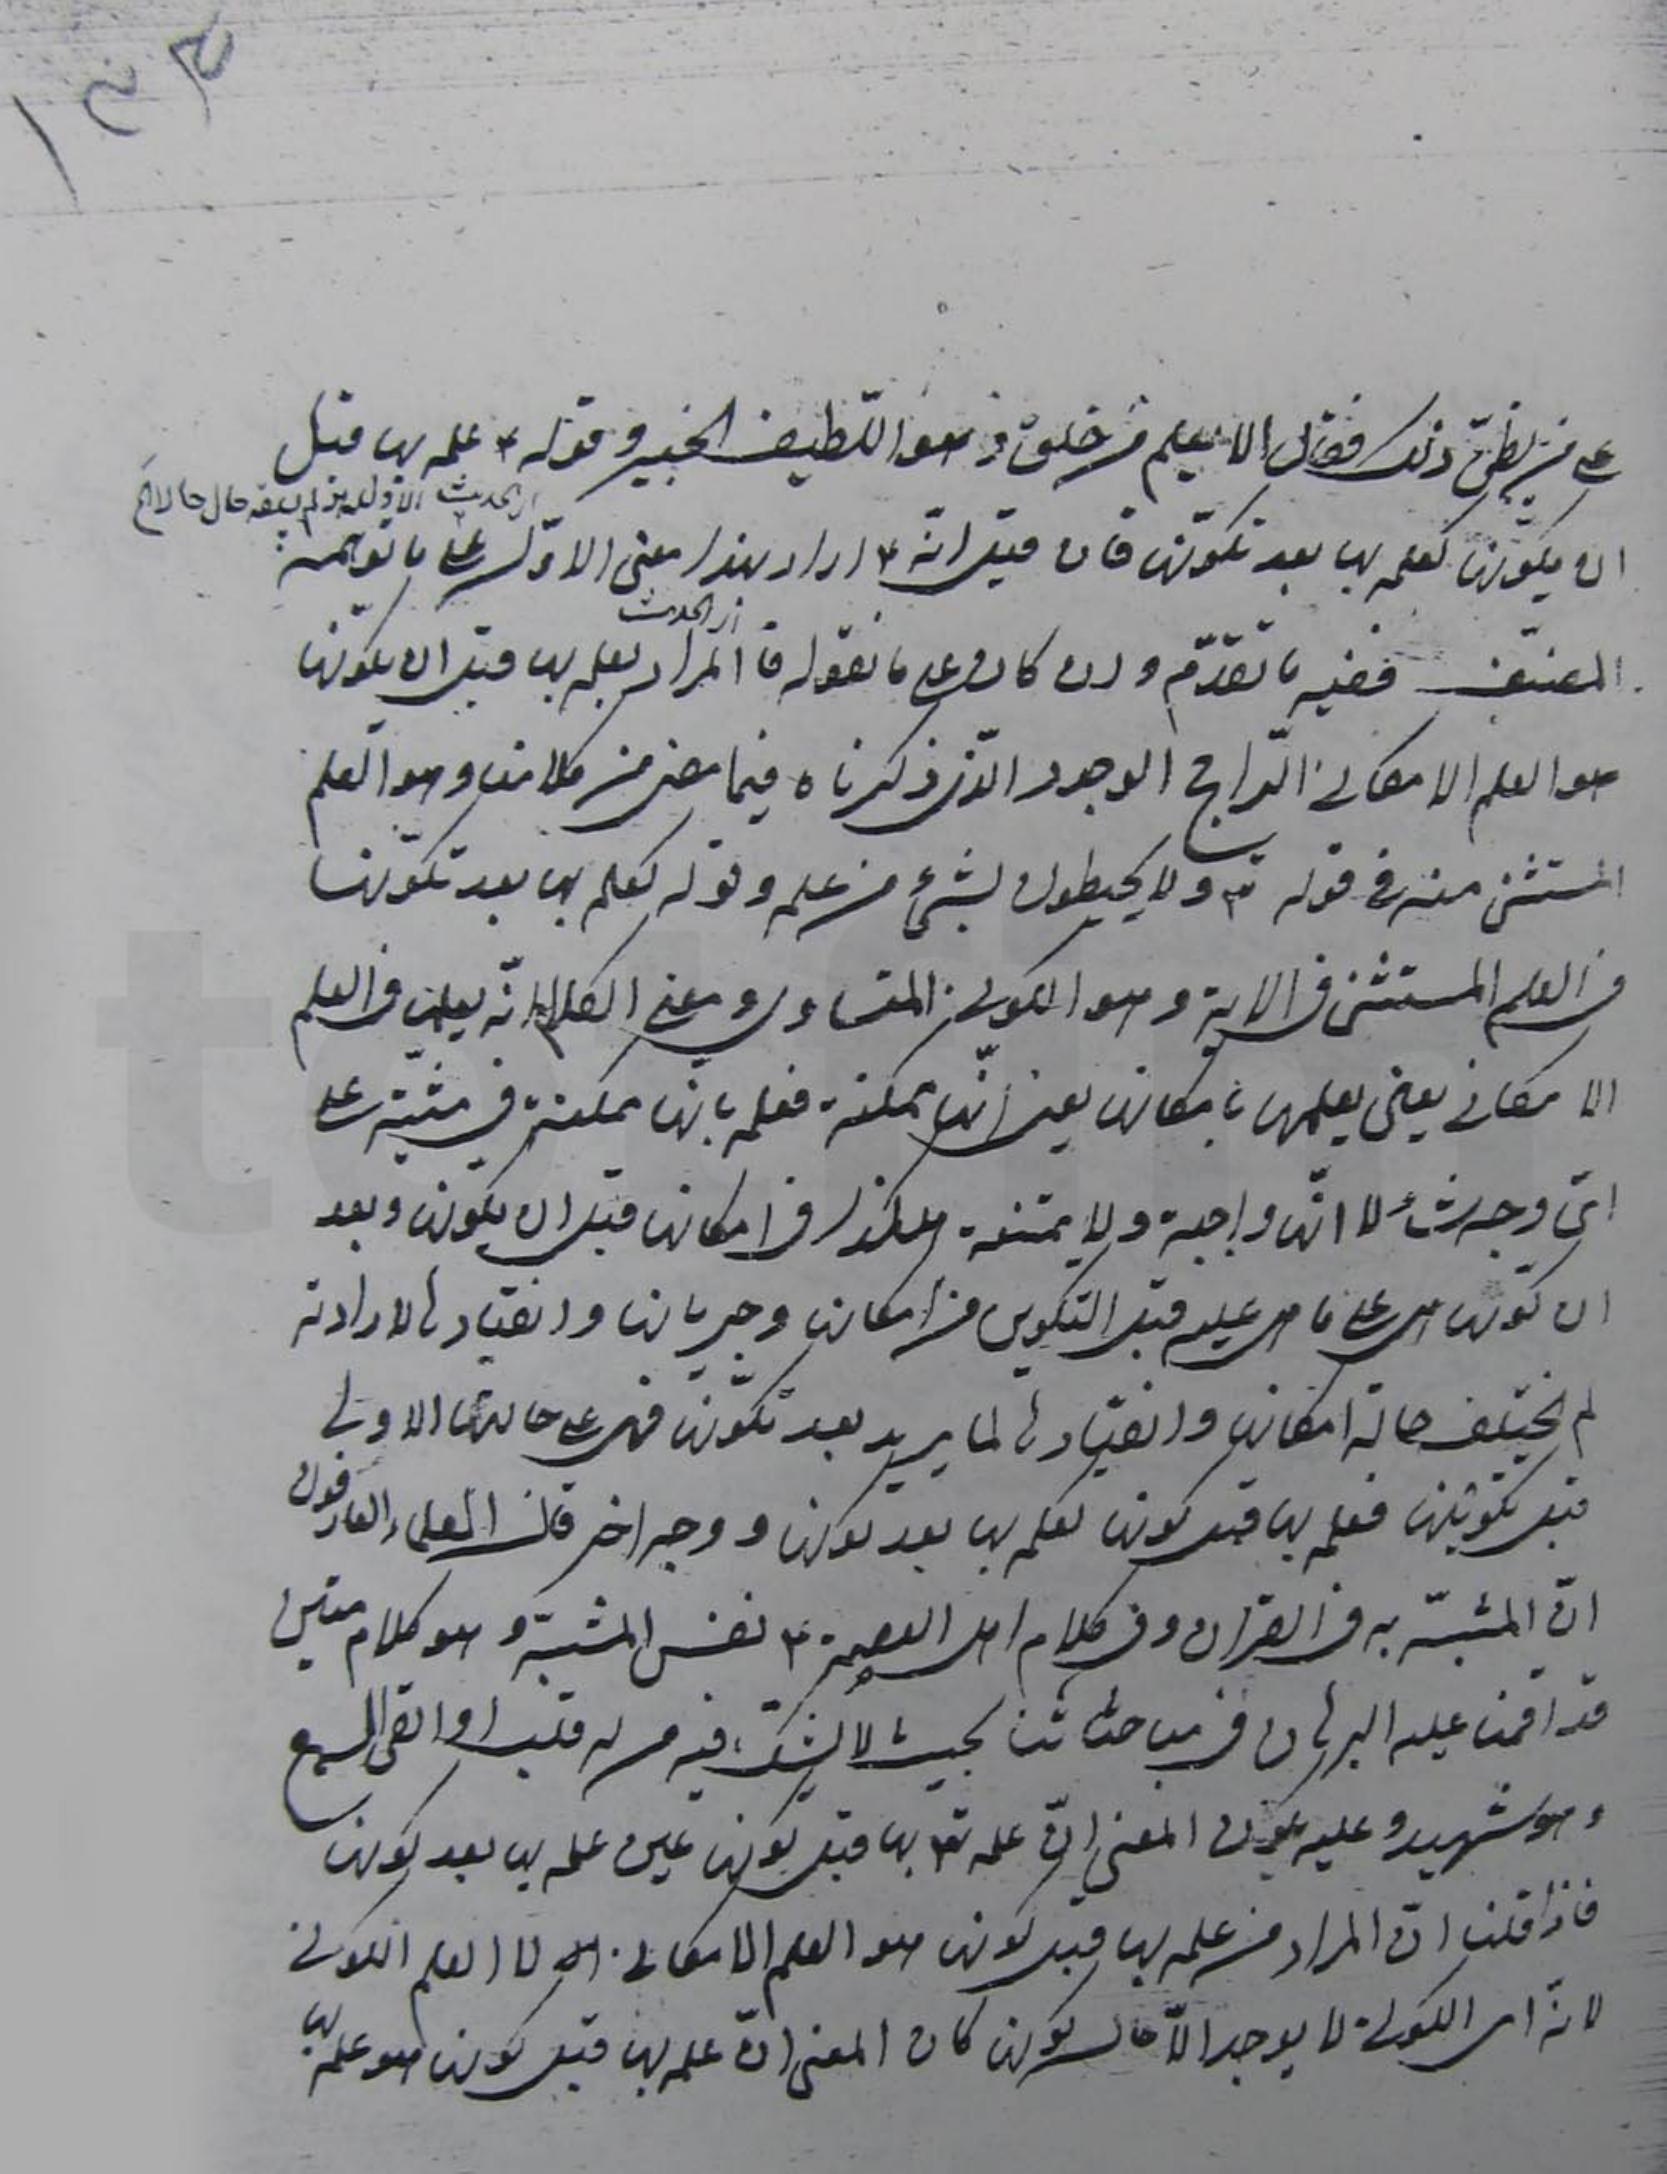 على من يظن ذلك فقال الا يعلم من خلق و هو اللّطيف الخبير و قوله ع علمه بها قبل
ان يكوّنها كعلمه بها بعد تكوّنها فان قيل انّه ع اراد بهذا معنى الاوّل على ما توهمه
اى الحديث الاول لم يسبقه حال حالا الخ
المصنّف ففيه ما تقدّم و ان كان على ما نقوله فالمراد بعلمه بها قبل ان يكوّنها
اى الحديث
هو العلم الامكانى الرّاجح الوجود الّذى ذكرناه فيما مضى من كلامنا و هو العلم
المستثنى منه فى قوله تع و لا يحيطون بشىء من علمه و قوله كعلمه بها بعد تكوّنها
فى العلم المستثنى فى الاية و هو الكونى المتساوى و معنى الكلام انّه يعلمها فى العلم
الامكانى يعنى يعلمها بامكانها يعنى انّها ممكنة فعلمه بانها ممكنة فى مشيّته على
اىّ وجه شاء لا انّها واجبة و لا ممتنعة هكذا فى امكانها قبل ان يكوّنها و بعد
ان كوّنها هى على ما هى عليه قبل التكوين من امكانها و جريانها و انقيادها لارادته
لم يختلف حالة امكانها و انقيادها لما يريد بعد تكوّنها فهى على حالتها الاولى
قبل تكوينها فعلمه بها قبل كونها كعلمه بها بعد كونها و وجه اخر قال العلماء العارفون
انّ المشبّه به فى القران و فى كلام اهل العصمة ع نفس المشبّه و هو كلام متين
قد اقمنا عليه البرهان فى مباحثاتنا بحيث لا يشكّ فيه من له قلب او القى السمع
و هو شهيد و عليه يكون المعنى انّ علمه تع بها قبل كونها عين علمه بها بعد كونها
فاذا قلنا انّ المراد من علمه بها قبل كونها هو العلم الامكانى لا العلم الكونى
لانه اى الكونى لا يوجد الّا حال كونها كان المعنى انّ علمه بها قبل كونها هو علمه بها